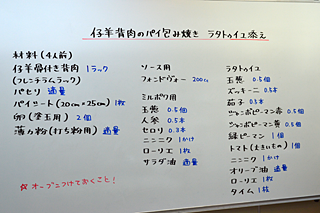 仔羊背肉のパイ包み焼き ラタトゥイユ添え
材料(4人前)
仔羊骨付き背肉 1ラック
(フレンチラムラック)
パセリ 適量
パイシート(20cm×25cm) 1枚
卵(塗玉用) 2個
薄力粉(打ち粉用) 適量
☆オーブンつけておくこと!
ソース用
フォンドヴォー 200cc
ミルポワ用
玉葱 0.5個
人参 0.5本
セロリ 0.3本
ニンニク 1かけ
ローリエ 1枚
サラダ油 適量
ラタトゥイユ
玉葱 0.5個
ズッキーニ 0.5本
茄子 0.5本
ジャンボピーマン赤 0.5個
ジャンボピーマン黄 0.5個
緑ピーマン 1個
トマト(大きいもの) 1個
ニンニク 1かけ
オリーブ油 適量
ローリエ 1枚
タイム 1枚